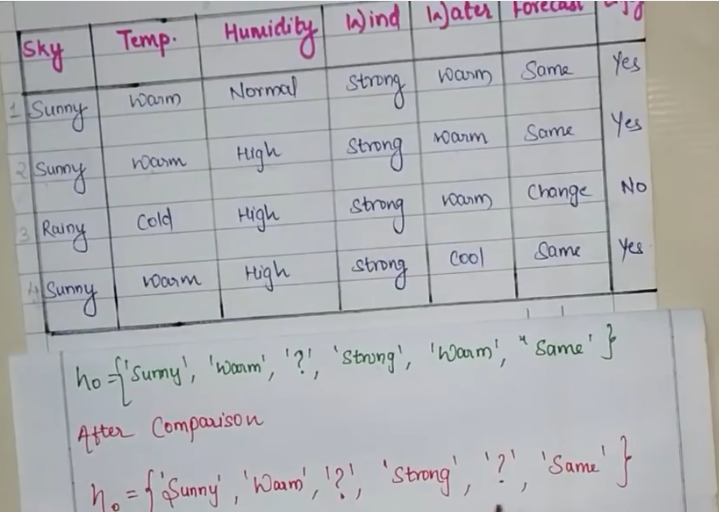 Sky Temp. Humidity Wind Water Forecast
1 Sunny Warm Normal Strong Warm Same Yes
2 Sunny Warm High Strong Warm Same Yes
3 Rainy Cold High Strong Warm Change No
4 Sunny Warm High Strong Cool Same Yes
h0 = {'Sunny', 'Warm', '?', 'Strong', 'Warm', "Same'}
After Comparison
h0 = {'Sunny', 'Warm', '?', 'Strong', '?', 'Same'}